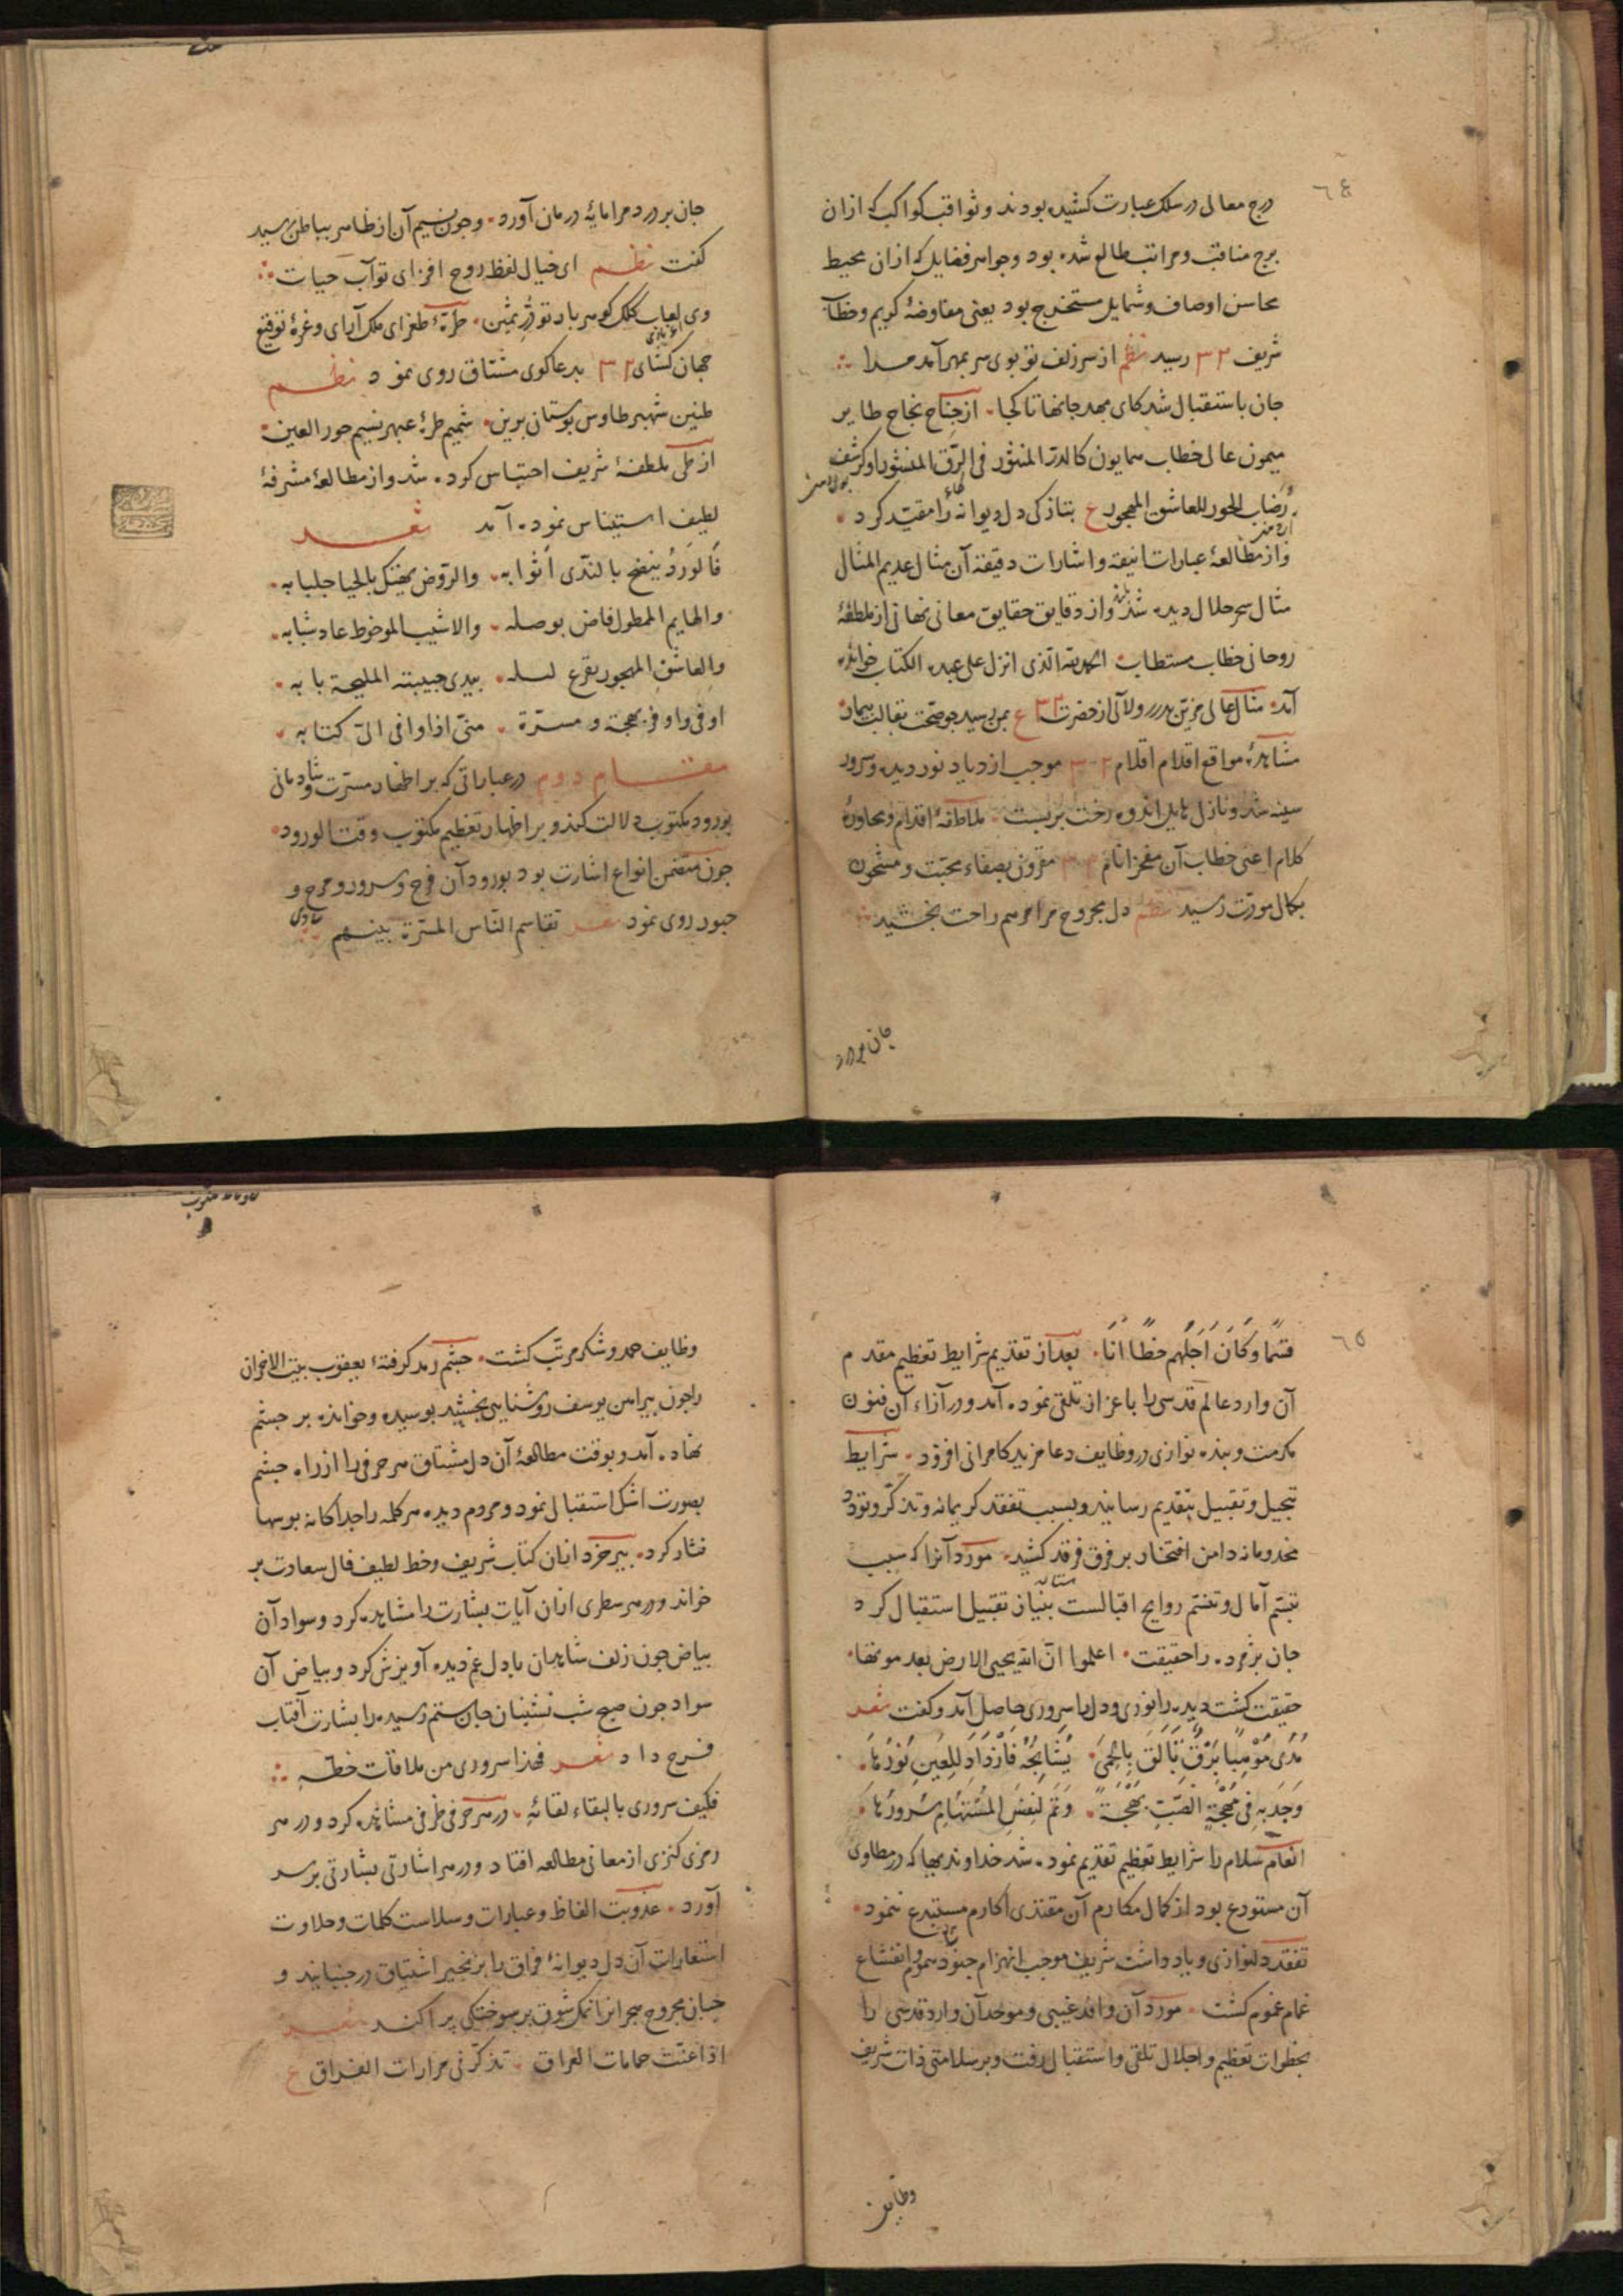 ٦٤
درج معالی در سلک عبارت کشیده بودند و ثواقب کواکب که ازان
برج مناقب و مراتب طالع شده بود و جواهر فضایل که ازان محیط
محاسن اوصاف و شمایل مستخرج بود یعنی مفاوضهٔ کریم و خطاب
شریف ۳۲ رسید نظم از سر زلف تو بوی سر بمهر آمد مدا
جان باستقبال شد کای مهد جانها تا کجا از جناح نجاح طایر
میمون عالی خطاب همایون کالدرّ المنثور فی الرّق المنشور او کرشف
رُضاب الحور للعاشق المهجور ع بتازکی دل دیوانه را مقیّد کرد
و از مطالعهٔ عبارات انیقه و اشارات دقیقه آن مثال عدیم المثال
مثال سحر حلال دیده شد و از دقایق حقایق معانی نهانی از ملطفهٔ
روحانی خطاب مستطاب الحمد لله الذی انزل علی عبده الکتاب خوانده
آمد مثال عالی مزیّن بدرر و لآلی از حضرت ۳۲ ع بمن رسید
مشاهدهٔ مواقع اقلام اقلام ۳۲ موجب ازدیاد نور دیده و سرور
سینه شد و نازل هایل اندوه رخت بربست ملاطفهٔ اقدام و محاورهٔ
کلام اعنی خطاب آن مفخر انام ۳۲ مقرون بصفاء محبّت و مشحون
بکمال مودّت رسید نظم دل مجروح مرا مرهم راحت بخشید
جان پردرد
جان پردرد مرا مایهٔ درمان آورد و چون نسیم آن از ظاهر بباطن رسید
کفت نظم ای خیال لفظ روح افزای تو آب حیات
وی لعاب کلک کوهر بار تو دُرّ ثمین طرّهٔ طغرای ملک آرای و غرهٔ توقیع
جهان کشای ۳۲ بدعاکوی مشتاق روی نمود نظم
طنین شهپر طاوس بوستان برین شمیم طرهٔ عبهر نسیم حور العین
از طی ملطفهٔ شریف احتباس کرده شد و از مطالعهٔ مشرفهٔ
لطیف استیناس نموده آمد شعر
فالورد ینفح بالندّی أثوابه والرّوض یضحک بالحیا جلبابه
والهایم الممطول فاض بوصله والاشیب الموخوط عاد شبابه
والعاشق المهجور یقرع لسله بیدی حبیبته الملیحة بابه
اوفی واوفر بهجة و مسرّة منّی اذا وافی الیّ کتابه
مقام دوم در عباراتی که بر اظهار مسرّت و شادمانی
بورود مکتوب دلالت کند و بر اظهار تعظیم مکتوب وقت الورود
چون متضمن انواع اشارت بود بورود آن فرح و سرور و مرح و
حبور روی نمود شعر تقاسم النّاس المسرّة بینهم
٦٥
قِسَمًا وَكَانَ أَجَلُّهم حَظًّا أَنَا بعد از تقدیم شرایط تعظیم مقدم
آن وارد عالم قدسی را باعزاز تلقی نموده آمد و در آزاء آن فنون
مکرمت و بنده نوازی در وظایف دعا مزید کامرانی افزود شرایط
تبجیل و تقبیل بتقدیم رسانید و بسبب تفقد کریمانه و تذکّر و تودّد
مخدومانه دامن افتخار بر فرق فرقد کشید مورد آنرا که سبب
تبسّم آمال و تنسّم روایح اقبالست بنیاز تقبیل استقبال کرد
جان پژمرده را حقیقت اعلموا انّ الله یحیی الارض بعد موتها
حقیقت کشت دیده را نوری و دل را سروری حاصل آمد و کفت شعر
بَرْقٌ تَأَلَّقَ بِالْحِمَى فَازْدَادَ لِلْعَيْنِ نُورُهَا
وَجَدَ بِهِ فِي مُهْجَةِ الصَّبِّ بَهْجَةً وَتَمَّ لِنَفْسِ الْمُسْتَهَامِ سُرُورُهَا
انعام سلام را شرایط تعظیم تقدیم نموده شد خداوندیها که در مطاوی
آن مستودع بود از کمال مکارم آن مقتدی اکارم مستبدع ننمود
تفقد دلنوازی و یاد داشت شریف موجب انهزام جنود هموم و انقشاع
غمام غموم کشت مورد آن وافد غیبی و موجد آن وارد قدسی را
بخطوات تعظیم و اجلال تلقی و استقبال رفت و بر سلامتی ذات شریف
وظایف
وظایف حمد و شکر مرتّب کشت چشم رمد کرفتهٔ یعقوب بیت الاحزان
را چون پیراهن یوسف روشنایی بخشید بوسیده و خوانده بر چشم
نهاده آمد و بوقت مطالعهٔ آن دل مشتاق هر حرفی را از راه چشم
بصورت اشک استقبال نمود و مردم دیده هر کلمه را جداکانه بوسها
نثار کرد پیر خرد ازان کتاب شریف و خط لطیف فال سعادت بر
خواند و در هر سطری ازان آیات بشارت را مشاهده کرد و سواد آن
بیاض چون زلف شاهدان با دل غم دیده آویزش کرد و بیاض آن
سواد چون صبح شب نشینان جان ستم رسیده را بشارت آفتاب
فرح داد شعر فهذا سروری من ملاقات خطّه
فکیف سروری بالبقاء لقائه در هر حرفی ظرفی مشاهده کرد و در هر
رمزی کنزی از معانی مطالعه افتاد و در هر اشارتی بشارتی بر سر
آورد عذوبت الفاظ و عبارات و سلاست کلمات و حلاوت
استعارات آن دل دیوانهٔ فراق را بزنجیر اشتیاق در جنبانید و
جان مجروح هجرانرا نمک شوق بر سوختکی پراکند شعر
اذا غنّت حمامات العراق تذکّرنی مرارات الفراق ع